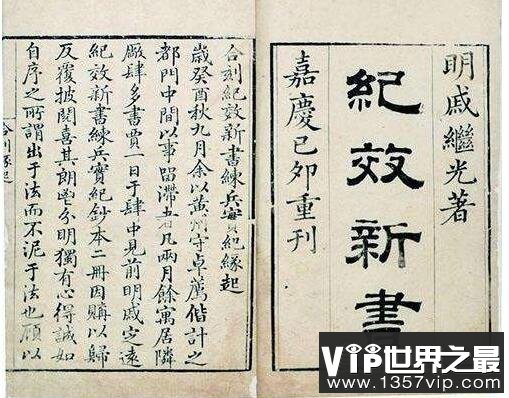 明戚繼光著
紀效新書
嘉慶己卯重刊
合刻紀效新書練兵實紀緣起
歲癸酉秋九月余以黄州守卓薦偕計之
都門中間以事留滯者凡兩月餘寓居隣
厰肆多書賈一日于肆中見前明戚定遠
紀效新書練兵實紀鈔本二冊因購以歸
反覆披閱喜其朗鬯分明獨有心得誠如
自序之所謂出于法而不泥于法也顧以
合刻緣起
VIP世界之最
www.1357vip.com